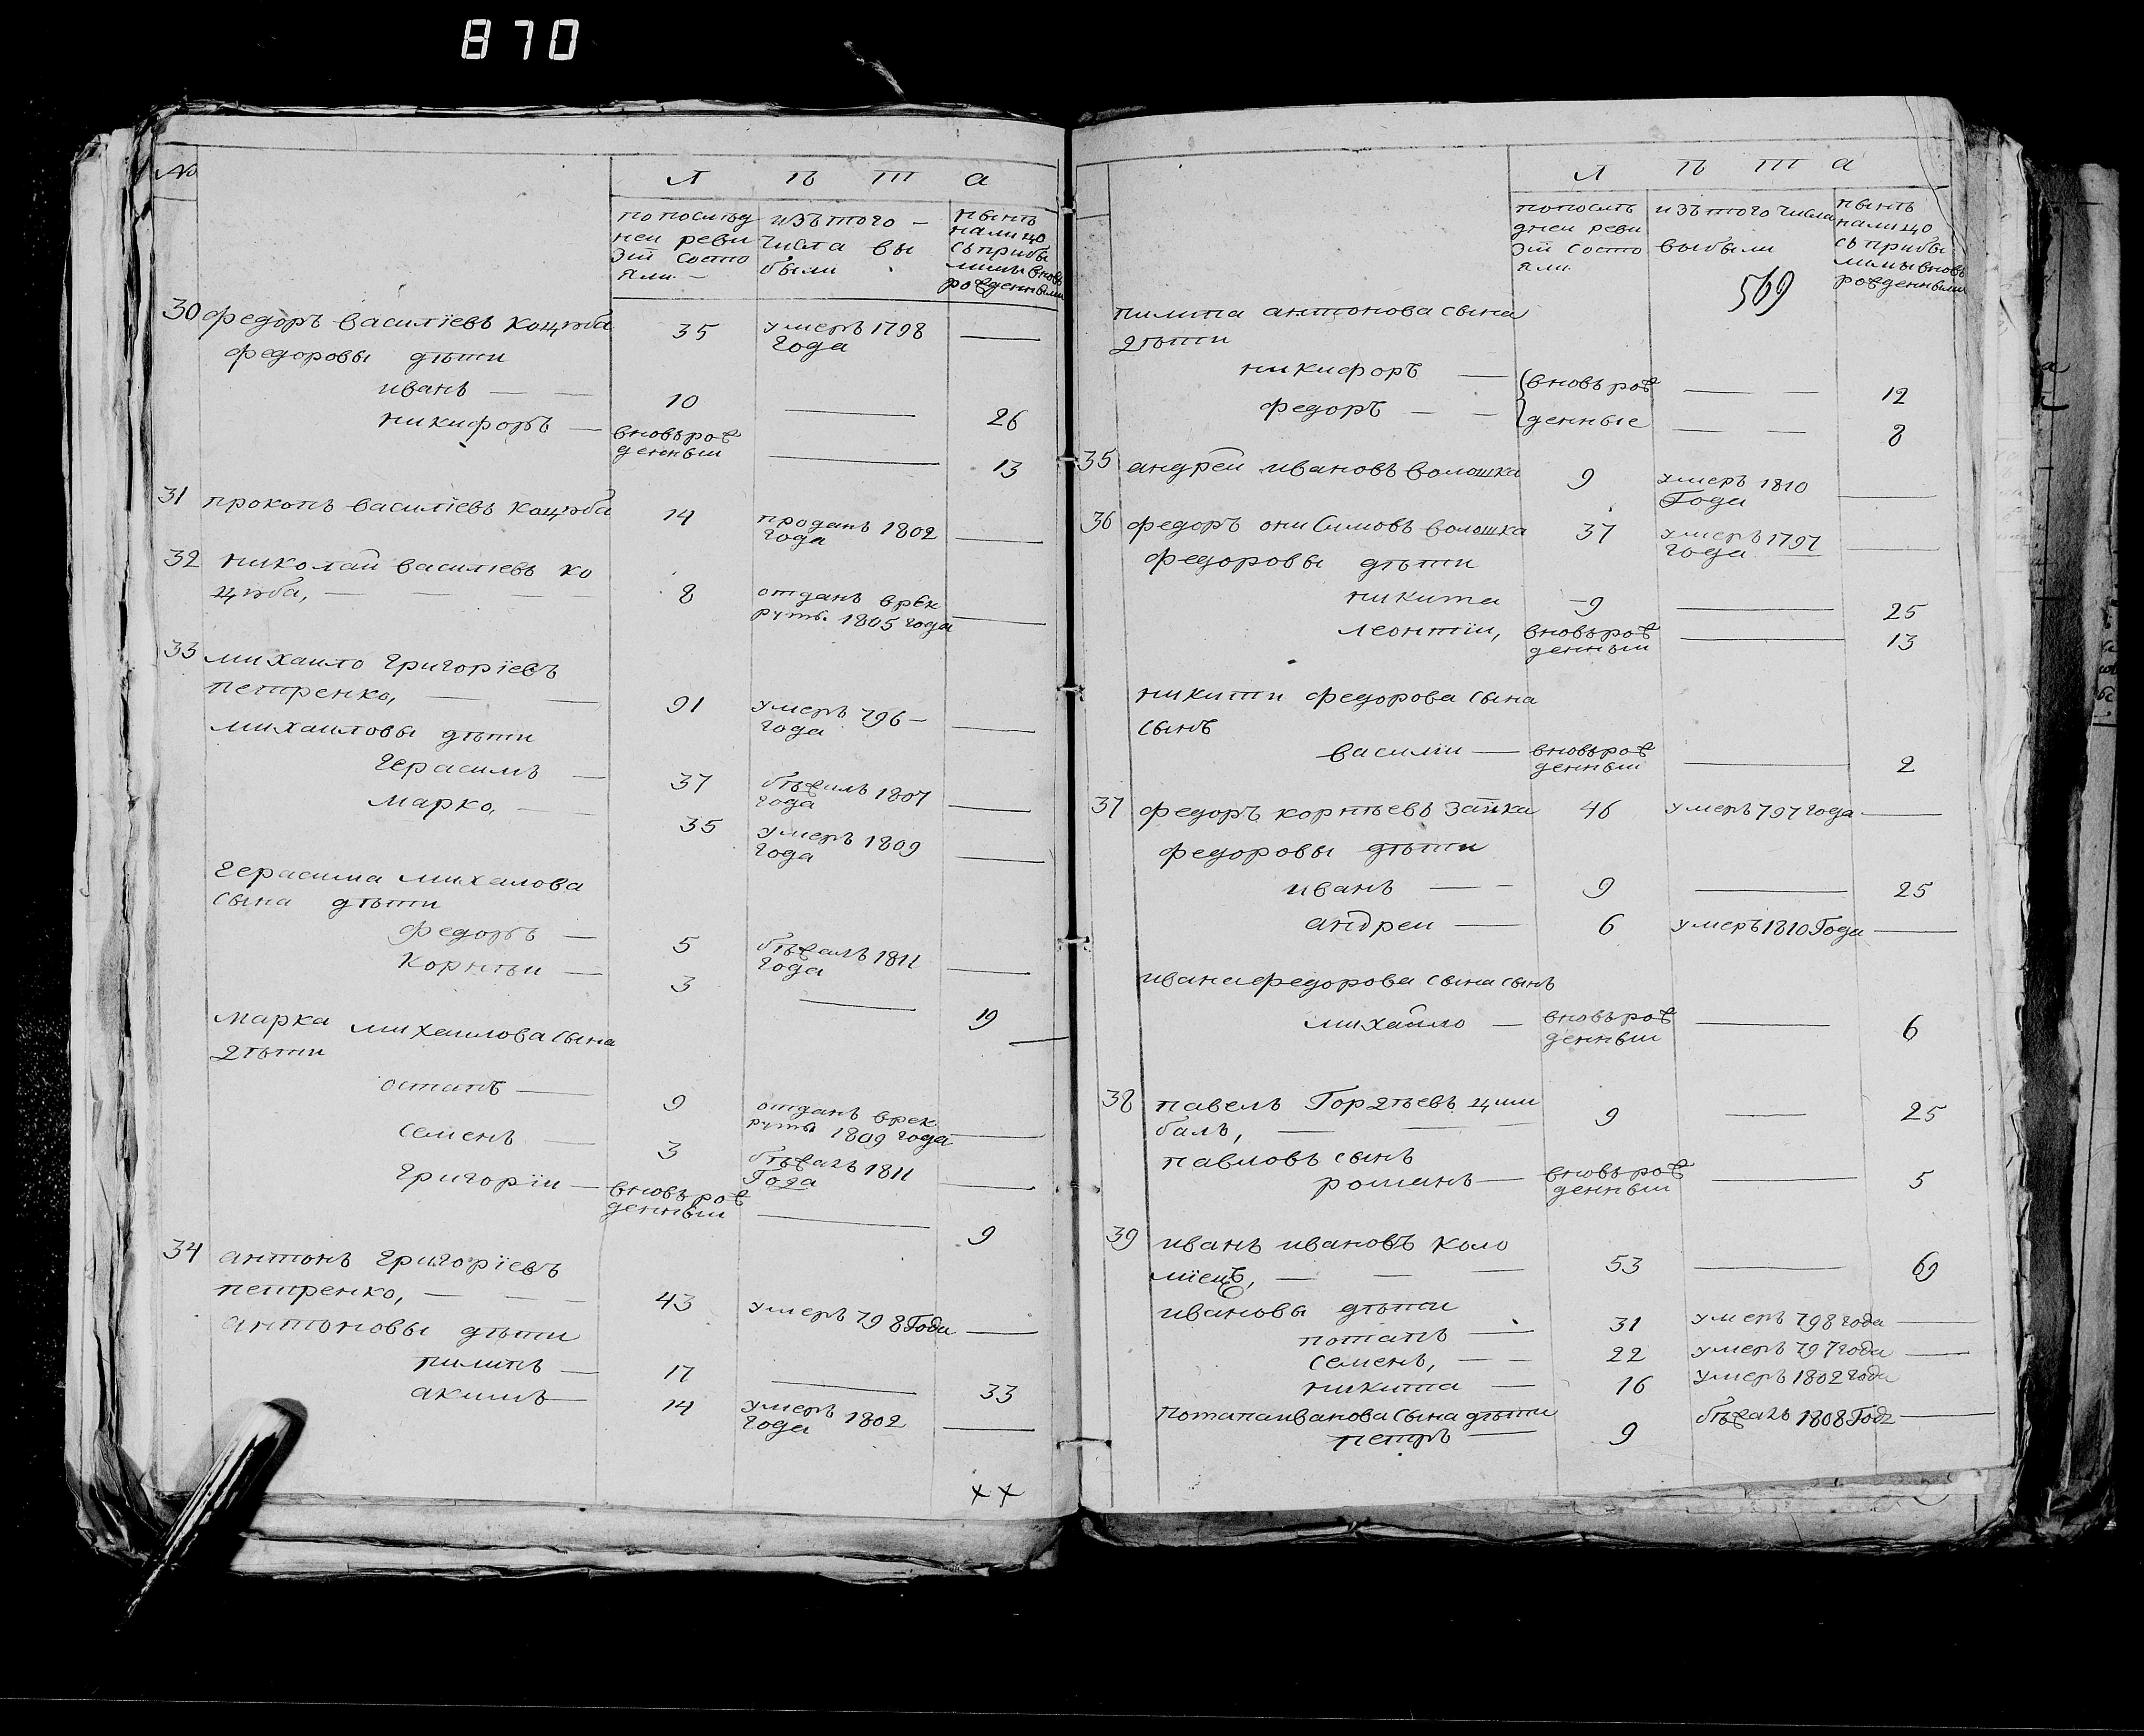 870
№
Л ѣ т а
по послѣд
ней реви
зіи состо
яли
изъ того
числа вы
были
нынѣ
налицо
съ прибы
лыми вновь
рожденными
30 федоръ василіевъ коцюба 35 умеръ 1798
года
федоровы дѣти
иванъ 10 26
никифоръ вновь рож
денный 13
31 прокопъ василіевъ коцюба 14 проданъ 1802
года
32 николай василіевъ ко
цюба, 8 отданъ врек
рутъ 1805 года
33 михаило григоріевъ
петренко, 91 умеръ 796
года
михаиловы дѣти
герасимъ 37 бѣжалъ 1807
года
марко, 35 умеръ 1809
года
герасима михалова
сына дѣти
федоръ 5 бѣжалъ 1811
года
корнѣи 3 19
марка михаилова сына
дѣти
остапъ 9 отданъ врек
руты 1809 года
семенъ 3 бѣжалъ 1811
Года
григоріи вновь рож
денный 9
34 антонъ григоріевъ
петренко, 43 умеръ 798 Года
антоновы дѣти
пилипъ 17 33
акимъ 14 умеръ 1802
года
××
Л ѣ т а
по послѣ
дней реви
зіи состо
яли
изъ того числа
выбыли
нынѣ
налицо
съ прибы
лыми вновь
рожденными
569
пилипа антонова сына
дѣти
никифоръ вновь рож 12
федоръ денные 8
35 андрей ивановъ волошка 9 умеръ 1810
Года
36 федоръ онисимовъ волошка 37 умеръ 1797
года
федоровы дѣти
никита 9 25
леонтіи, вновь рож
денный 13
никити федорова сына
сынъ
василіи вновь рож
денный 2
37 федоръ корнѣевъ заика 46 умеръ 797 года
федоровы дѣти
иванъ 9 25
андреи 6 умеръ 1810 Года
ивана федорова сына сынъ
михайло вновь рож
денный 6
38 павелъ Гордѣевъ цим
балъ, 9 25
павловъ сынъ
романъ вновь рож
денный 5
39 иванъ ивановъ коло
міецъ, 53 69
ивановы дѣти
потапъ 31 умеръ 798 года
семенъ, 22 умеръ 797 года
никита 16 умеръ 1802 года
потапа иванова сына дѣти
петръ 9 бѣжалъ 1808 Года